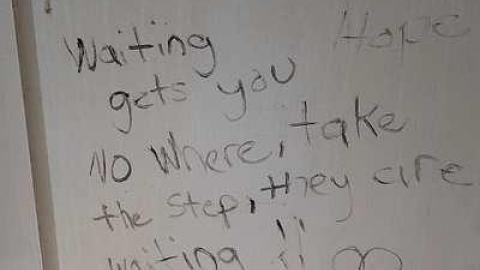 Waiting Hope
gets you
No Where, take
the step, they are
waiting !!